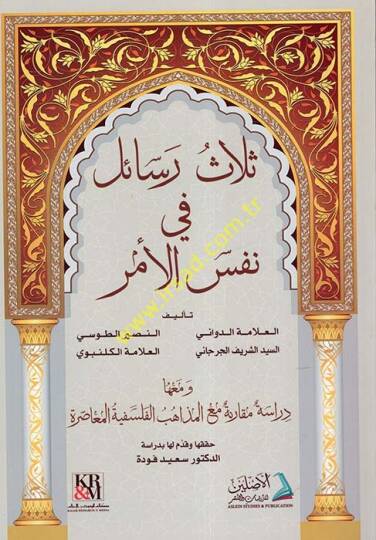 ثلاثُ رسَائل
في
نفسِ الأمْر
تأليف
العلامة الدواني النصير الطوسي
السيد الشريف الجرجاني العلامة الكلنبوي
ومَعَها
دراسَة مقارنة مَع المذاهبْ الفلسَفية المعَاصرَة
حققها وقدّم لها بدراسة
الدكتور سعيد فودة
KR
&M
KALAM RESEARCH & MEDIA
الأصْلين
للدراسات والنشر
ASLEIN STUDIES & PUBLICATION